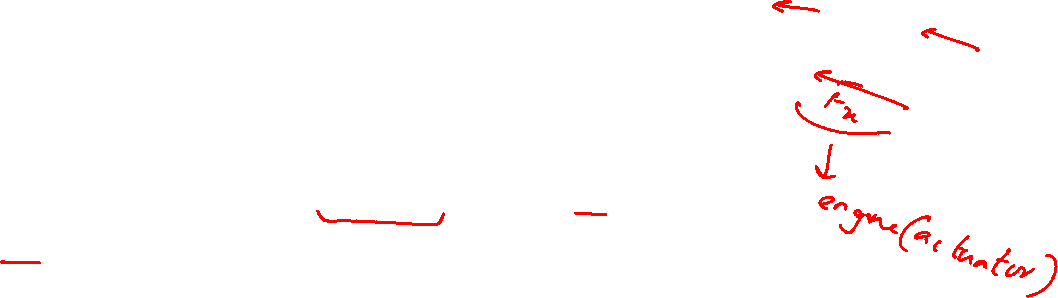 Fx
engine(actuator)